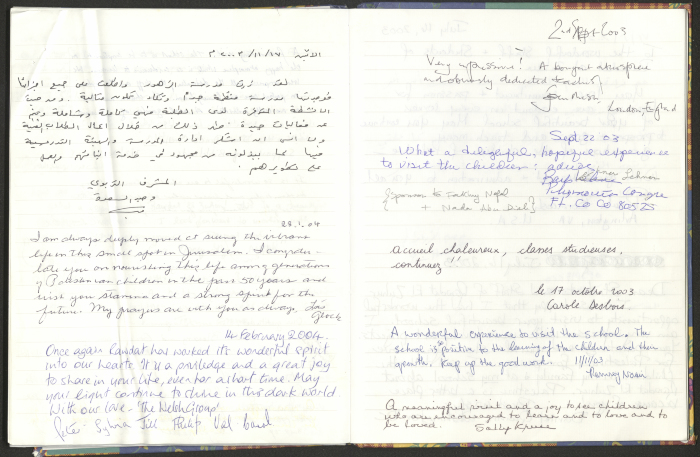 الاثنين ٢٠٠٣/١١/١٧ م
لقد زرت مدرسة الزهور واطلعت على جميع
فوجدتها مدرسة منظمة جيداً وتكاد تكون مثالية
الانشطة
عن فعاليات جيدة
ولا انسى ان اشكر ادارة المدرسة والهيئة التدريسية
فيها لما يبذلونه من مجهود في خدمة
تطويرهم
المشرف التربوي
28.1.04
I am always deeply moved at seeing the vibrant
life in this small spot in Jerusalem. I congratu-
late you on nourishing this life among generations
of Palestinian children in the past 50 years and
wish you stamina and a strong spirit for the
future. My prayers are with you as always.
Glock
14 February 2004.
Once again Rawdat has worked its wonderful spirit
into our hearts. It is a priviledge and a great joy
to share in your life, even for a short time. May
your light continue to shine in this dark world
With our love - 'The Welsh Group'
Peter Sylvia Jill Philip Val
2nd Sept 2003
Very impressive! A bouyant atmosphere
and obviously dedicated teachers
London, England
Sept 22 03
What a delightful, hopeful experience
to visit the children:
Plymouth Congre
Ft. Co Co 80525
{Sponsor to
+ Nada Abu
accueil chaleureux, classes studieuses,
continuez!!
le 17 octobre 2003
Carole Desbois
A wonderful experience to visit the school. The
school is positive to the learning of the children and their
growth. Keep up the good work. 11/11/03
A meaningful visit and a joy to see children
who are encouraged to learn and to love and to
be loved. Sally Kruse